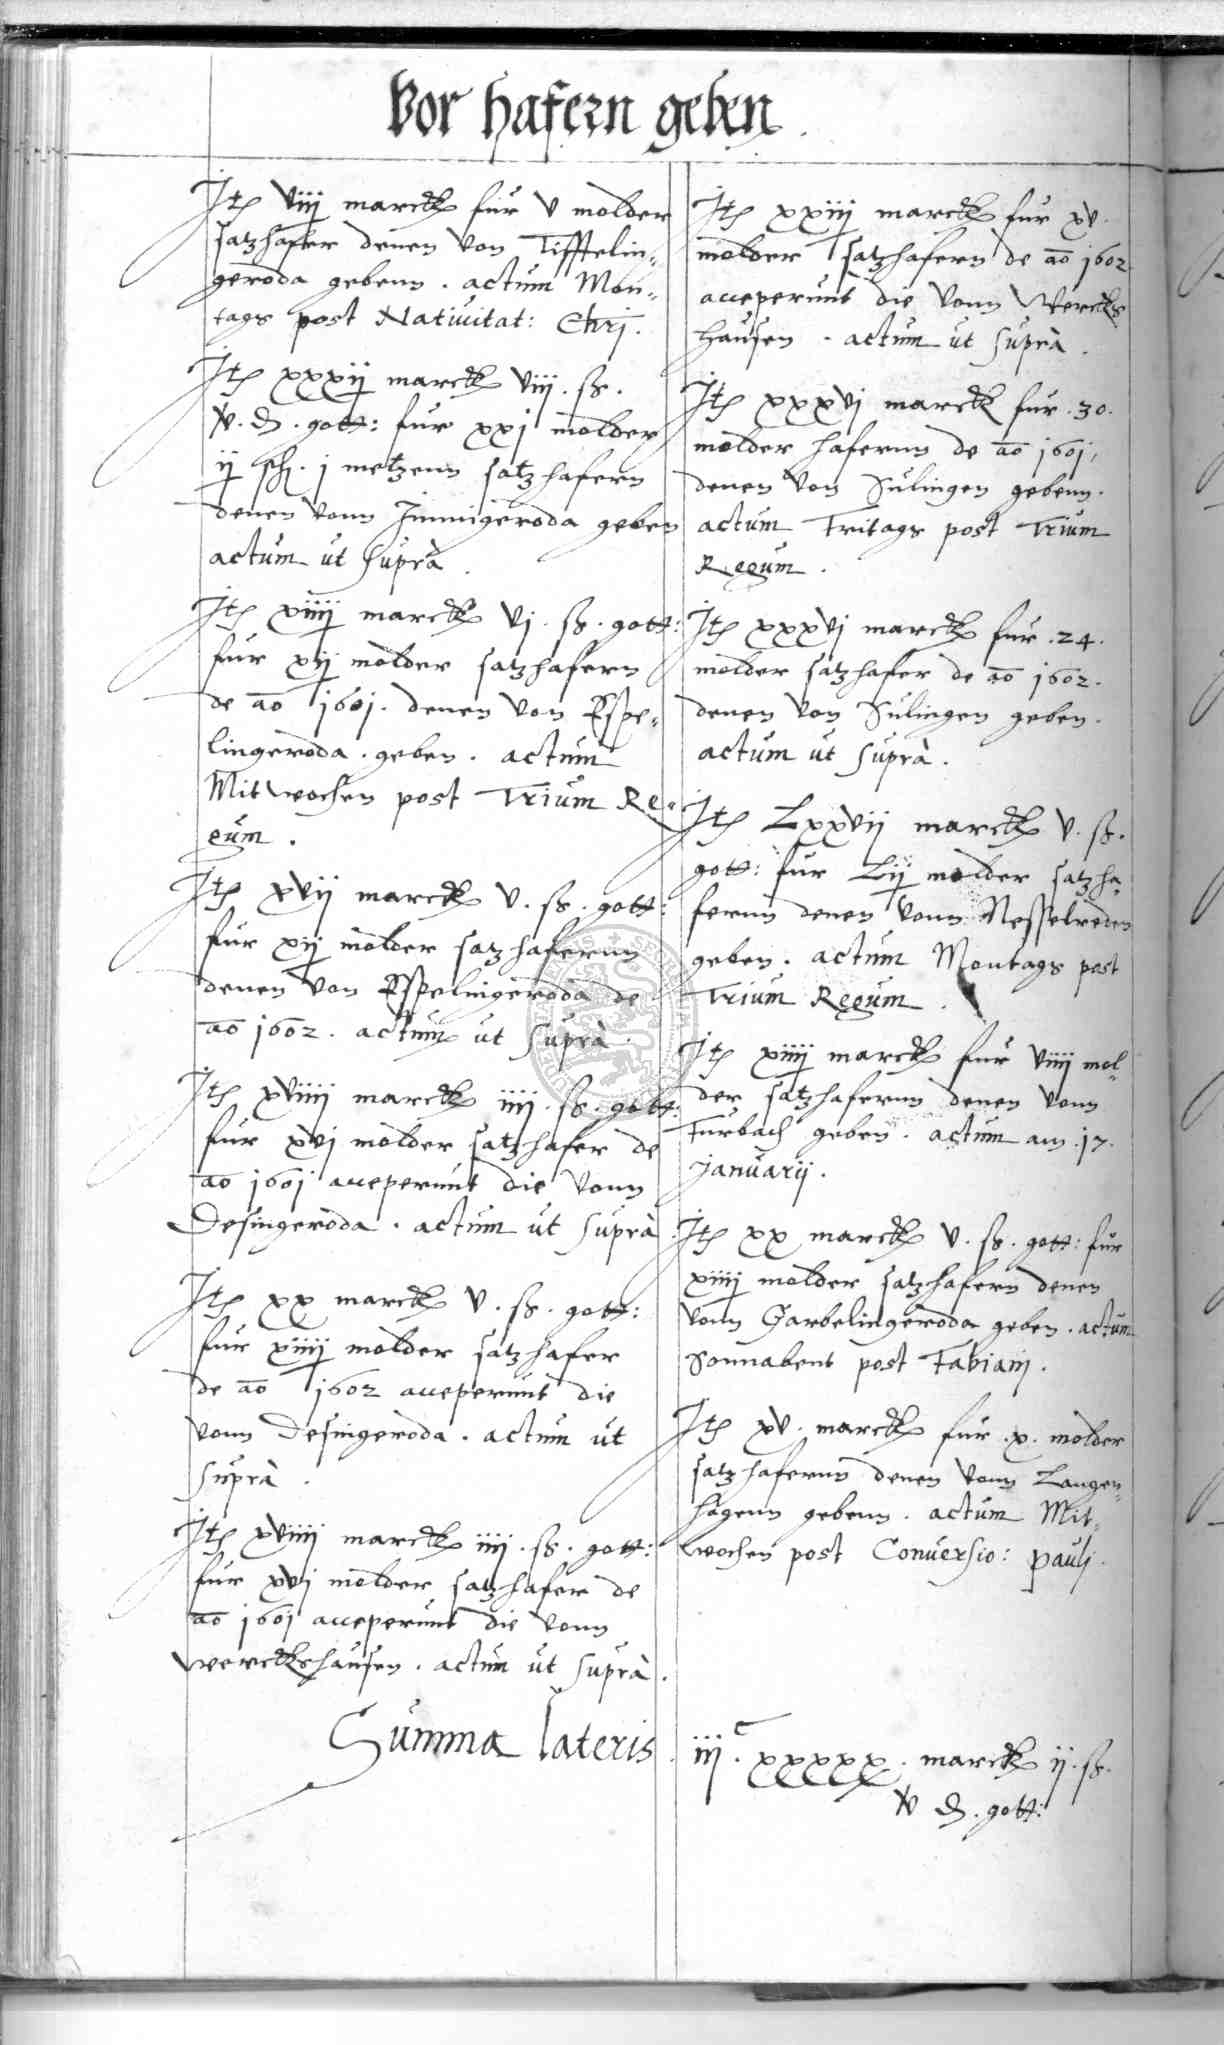 Vor hafern geben.
Itȩ viiij marckȩ fur v molder
satzhafer denen von Tifftelin„
geroda gebenn . actum Mon„
tags post Natiuitat: Chrj.
Itȩ xxxij marckȩ viij . ß .
v . ₰ . gott: fur xxj molder
ij sch. j metzenn satzhafern
denen vonn Immigeroda geben
actum ut suprà .
Itȩ xiiij marckȩ vj . ß . gott:
fur xij molder satzhafern
de ao 1601 . denen von Espe„
lingeroda . geben . actum
Mitwochen post Trium Re„
gum .
Itȩ xvij marckȩ v . ß . gott:
fur xij molder satzhafernn
denen von Espelingeroda de
ao 1602 . actum ut suprà .
Itȩ xviiij marckȩ iiij . ß . gott:
fur xvj molder satzhafer de
ao 1601 acceperunt die vonn
Desingeroda . actum ut suprà .
Itȩ xx marckȩ v . ß . gott:
fur xiiij molder satzhafer
de ao 1602 acceperunt die
vonn Desingeroda . actum ut
suprà .
Itȩ xviiij marckȩ iiij . ß . gott:
fur xvj molder satzhafer de
ao 1601 acceperunt die vonn
Werckshausen . actum ut suprà .
Itȩ xxiij marckȩ fur xv .
molder satzhafern de ao 1602
acceperunt die vonn Wercks
hausen . actum ut suprà .
Itȩ xxxvj marckȩ fur . 30 .
molder hafernn de ao 1601,
denen von Sulingen gebenn .
actum Fritags post Trium
Regum .
Itȩ xxxvj marckȩ fur . 24 .
molder satzhafer de ao 1602 .
denen von Sulingen geben .
actum ut suprà .
Itȩ Lxxvij marckȩ v . ß .
gott: fur Lij molder satzha„
fernn denen vonn Nesselreden
geben . actum Montags post
Trium Regum .
Itȩ xiiij marckȩ fur viiij mol„
der satzhafernn denen vonn
Furbach geben . actum am . 17 .
Januarij .
Itȩ xx marckȩ v . ß . gott: fur
xiiij molder satzhafern denen
vonn Garbelingeroda geben . actum
Sonnabent post Fabianj .
Itȩ xv . marckȩ fur . x . molder
satzhafernn denen vonn Langen„
hagenn gebenn . actum Mit„
wochen post Conuersio: Paulj .
Summa lateris . iijc . xxxxx . marckȩ ij . ß .
v ₰ . gott: